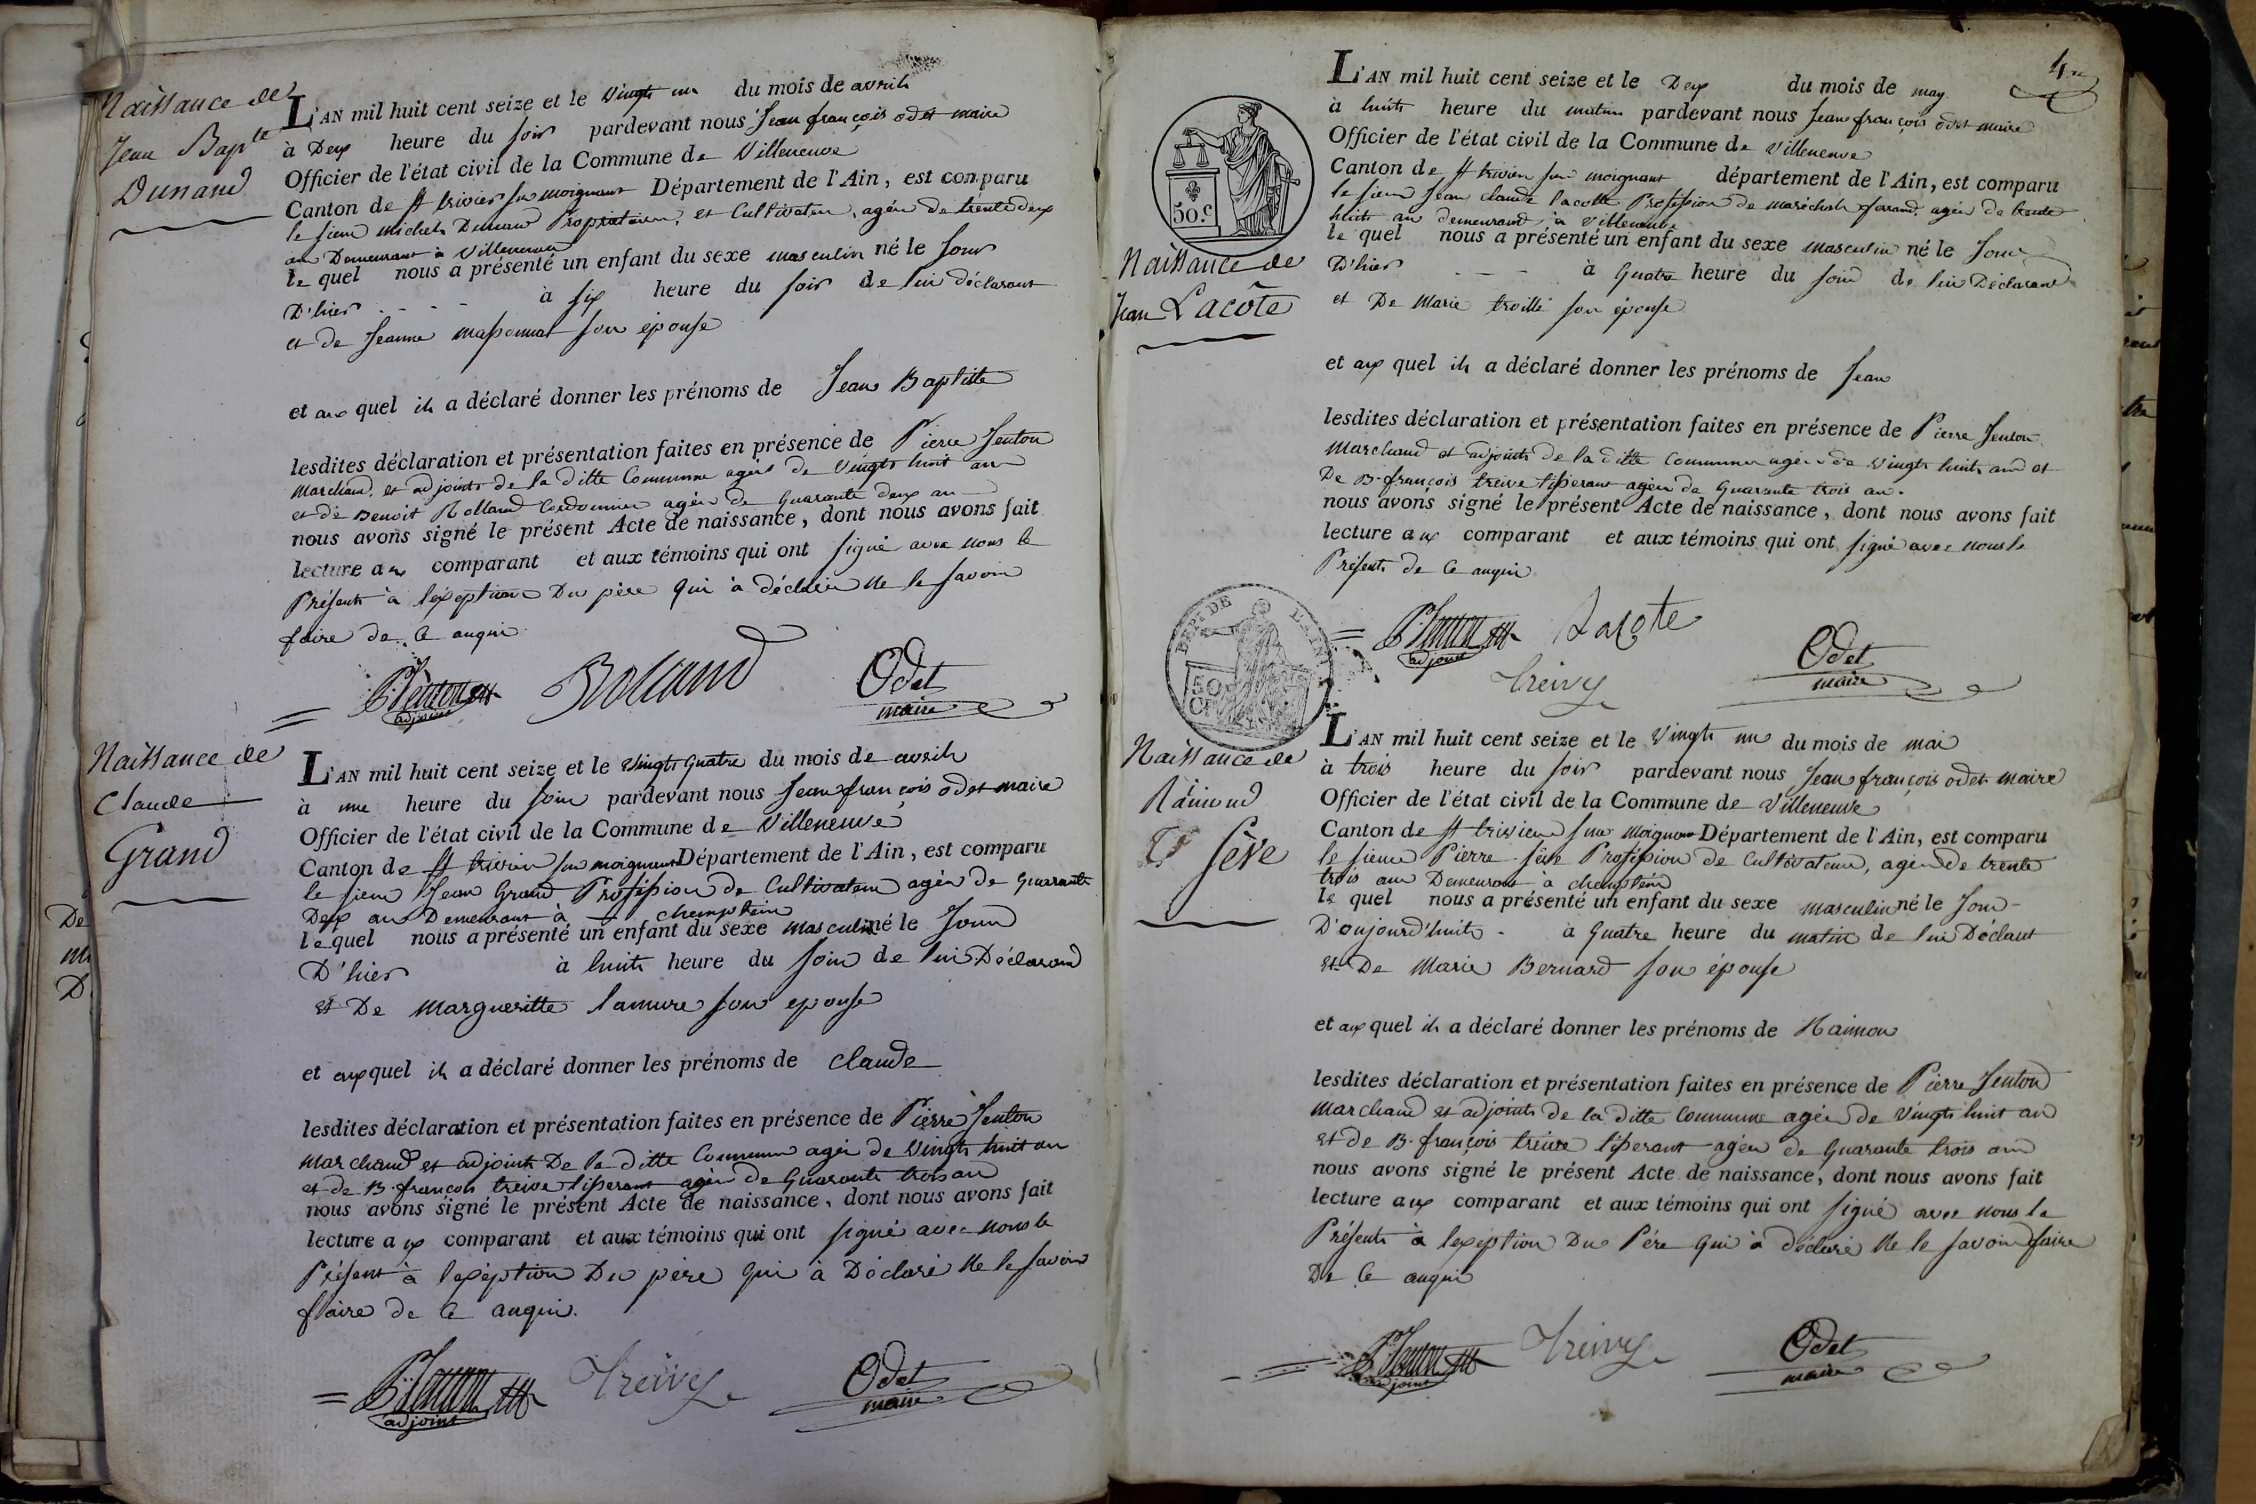 Naissance de
Jean Bapte
Dunand
L'AN mil huit cent seize et le vingt un du mois de avril
à Deux heure du soir pardevant nous Jean françois odet maire
Officier de l'état civil de la Commune de Villeneuve
Canton de St trivier sur moignant Département de l'Ain, est comparu
le sieur michel Dunand Propriétaire, et Cultivateur, agée de trente deux
an Demeurant à Villeneuve
le quel nous a présenté un enfant du sexe masculin né le Jour
D'hier - - - à six heure du soir de lui déclarant
et de Jeanne massonnat son épouse
et aux quel il a déclaré donner les prénoms de Jean Baptiste
lesdites déclaration et présentation faites en présence de Pierre Jenton
Marchand, et adjoint de la ditte Commune agée de vingt huit an
et de Benoit Rolland Cordonnier agée de quarante deux an
nous avons signé le présent Acte de naissance, dont nous avons fait
lecture aux comparant et aux témoins qui ont signé avec nous le
Présent à l'exeption Du père qui à déclaré ne le savoir
faire de ce anquir
PJenton
adjoint
Rolland
Odet
maire
Naissance de
Claude
Grand
L'AN mil huit cent seize et le vingt quatre du mois de avril
à une heure du soir pardevant nous Jean françois odet maire
Officier de l'état civil de la Commune de Villeneuve
Canton de St trivier sur moignant Département de l'Ain, est comparu
le sieur Jean Grand Profession de Cultivateur agée de quarante
Deux an Demeurant à champtein
le quel nous a présenté un enfant du sexe masculin né le Jour
D'hier à huit heure du soir de lui Déclarant
et De Margueritte lamure son epouse
et aux quel il a déclaré donner les prénoms de Claude
lesdites déclaration et présentation faites en présence de Pierre Jenton
Marchand et adjoint De la ditte Commune agée de vingt huit an
et de B. françois treive tisserant agée de quarante trois an
nous avons signé le présent Acte de naissance, dont nous avons fait
lecture aux comparant et aux témoins qui ont signé avec nous le
Présent à l'exéption Du père qui à Déclaré ne le savoir
faire de ce anquir.
PJenton
adjoint
Treivy
Odet
maire
50.c
Naissance de
Jean Lacôte
L'AN mil huit cent seize et le Deux du mois de may
à huit heure du matin pardevant nous Jean françois odet maire
Officier de l'état civil de la Commune de Villeneuve
Canton de St trivier sur moignant département de l'Ain, est comparu
le sieur Jean Claude lacotte Profession de maréchal ferrand, agée de trente
huit an demeurant à Villeneuve
le quel nous a présenté un enfant du sexe masculin né le Jour
D'hier - - - à quatre heure du soir de lui Déclarant
et De Marie trouillé son épouse
et aux quel il a déclaré donner les prénoms de Jean
lesdites déclaration et présentation faites en présence de Pierre Jenton
Marchand et adjoint de la ditte Commune agée de vingt huit an et
De B. françois treive tisserant agée de quarante trois an.
nous avons signé le présent Acte de naissance, dont nous avons fait
lecture aux comparant et aux témoins qui ont signé avec nous le
Présent de ce anquir
DEP.T DE L'AIN
50
PJenton
adjoint
Lacote
Treivy
Odet
maire
Naissance de
Raimond
Sève
L'AN mil huit cent seize et le vingt un du mois de mai
à trois heure du soir pardevant nous Jean françois odet maire
Officier de l'état civil de la Commune de Villeneuve
Canton de St trivier sur moignant Département de l'Ain, est comparu
le sieur Pierre Sève Profession de Cultivateur, agée de trente
trois an Demeurant à champtein
le quel nous a présenté un enfant du sexe masculin né le Jour
D'oujourd'huit - à quatre heure du matin de lui Déclart
et De Marie Bernard son épouse
et aux quel il a déclaré donner les prénoms de Raimon
lesdites déclaration et présentation faites en présence de Pierre Jenton
Marchand et adjoint de la ditte Commune agée de vingt huit an
et de B. françois treive tisserant agée de quarante trois an
nous avons signé le présent Acte de naissance, dont nous avons fait
lecture aux comparant et aux témoins qui ont signé avec nous le
Présent à l'exeption Du Père qui à déclaré ne le savoir faire
De ce anquir
PJenton
adjoint
Treivy
Odet
maire